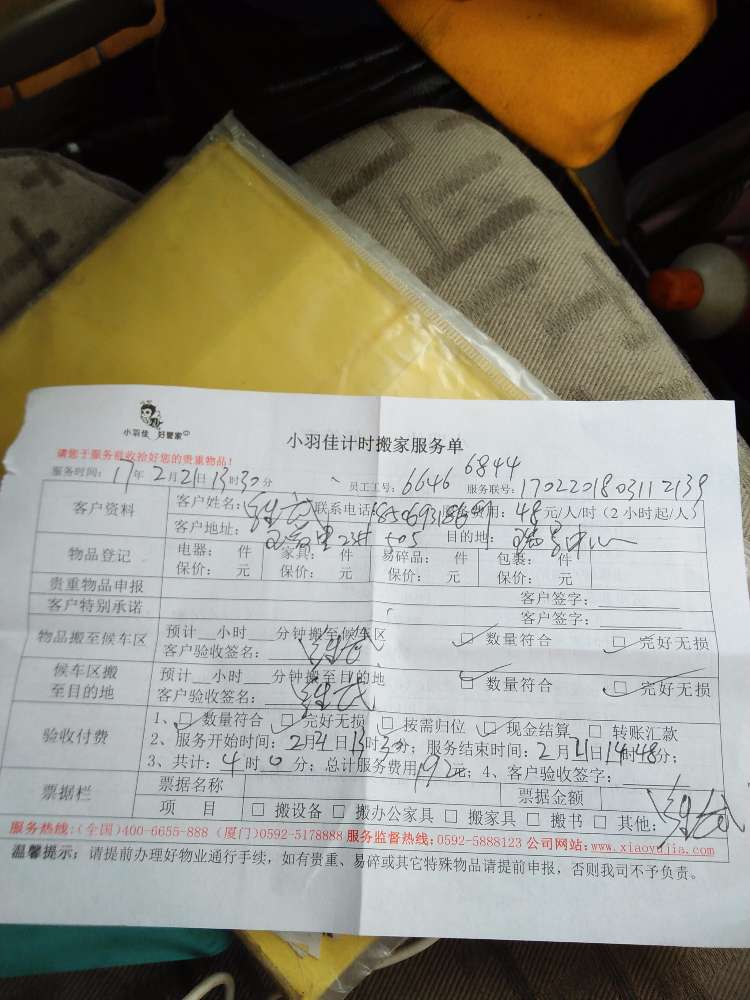 小羽佳 好管家
小羽佳计时搬家服务单
请您于服务前收拾好您的贵重物品！
服务时间：17年2月21日13时30分 员工工号：6646 6844 服务联号：1702201803112139
客户资料 客户姓名： 联系电话 费用：48元/人/时(2小时起/人)
客户地址： 23# 505 目的地： 中心
物品登记 电器： 件 家具： 件 易碎品： 件 包裹： 件
保价： 元 保价： 元 保价： 元 保价： 元
贵重物品申报 客户签字：
客户特别承诺 客户签字：
物品搬至候车区 预计 小时 分钟搬至候车区 □ 数量符合 □ 完好无损
客户验收签名：
候车区搬至目的地 预计 小时 分钟搬至目的地 □ 数量符合 □ 完好无损
客户验收签名：
验收付费 1、□ 数量符合 □ 完好无损 □ 按需归位 □ 现金结算 □ 转账汇款
2、服务开始时间：2月21日13时30分；服务结束时间：2月21日14时48分；
3、共计：4时0分；总计服务费用192元；4、客户验收签字：
票据栏 票据名称 票据金额
项 目 □ 搬设备 □ 搬办公家具 □ 搬家具 □ 搬书 □ 其他：
服务热线：(全国)400-6655-888 (厦门)0592-5178888 服务监督热线：0592-5888123 公司网站：www.xiaoyujia.com
温馨提示：请提前办理好物业通行手续，如有贵重、易碎或其它特殊物品请提前申报，否则我司不予负责。